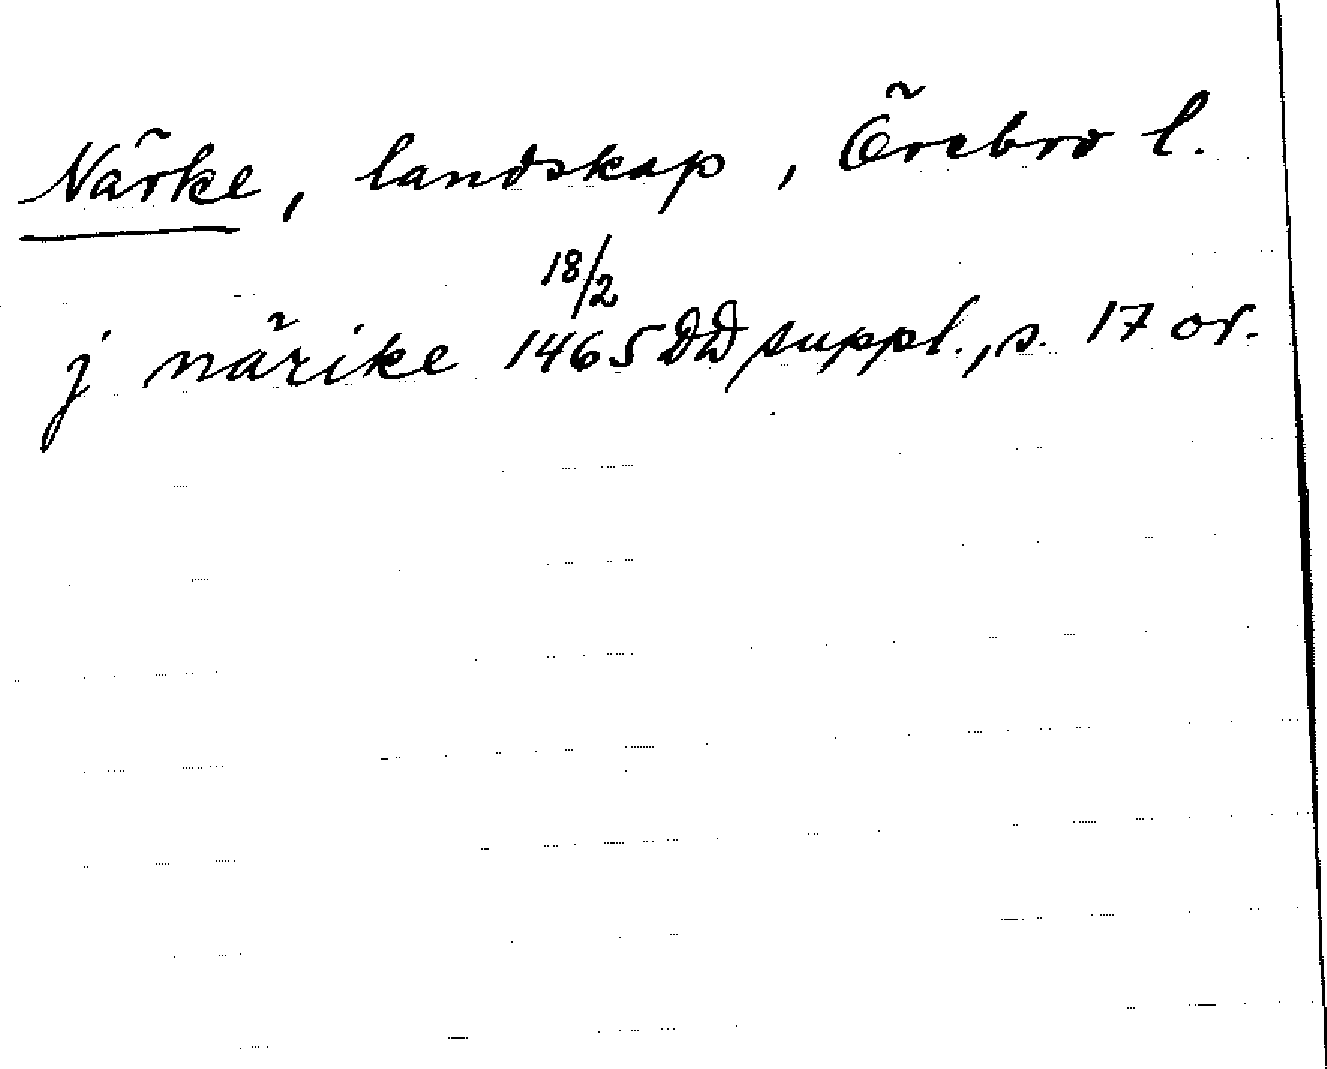 Närke, landskap, Örebro l.
18/2
j närike 1465 DD suppl., s. 17 or.